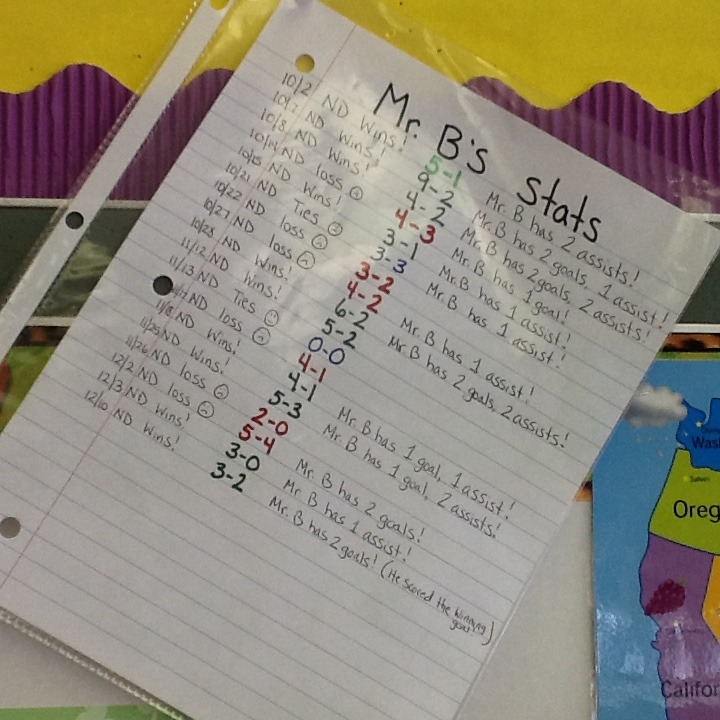 Mr. B's Stats
10/2 ND Wins! 5-1 Mr. B has 2 assists!
10/7 ND Wins! 9-2 Mr. B has 2 goals, 1 assist!
10/8 ND Wins! 4-2 Mr. B has 2 goals, 2 assists!
10/14 ND loss 4-3 Mr. B has 1 goal!
10/15 ND Wins! 3-1 Mr. B has 1 assist!
10/21 ND Ties 3-3 Mr. B has 1 assist!
10/22 ND loss 3-2
10/27 ND loss 4-2
10/28 ND Wins! 6-2 Mr. B has 1 assist!
11/12 ND Wins! 5-2 Mr. B has 2 goals, 2 assists!
11/13 ND Ties 0-0
ND loss 4-1
11/18 ND Wins! 4-1 Mr. B has 1 goal, 1 assist!
11/25 ND Wins! 5-3 Mr. B has 1 goal, 2 assists!
11/26 ND loss 2-0
12/2 ND loss 5-4 Mr. B has 2 goals!
12/3 ND Wins! 3-0 Mr. B has 1 assist!
12/10 ND Wins! 3-2 Mr. B has 2 goals! (He scored the winning goal)
Was
Oreg
Califor